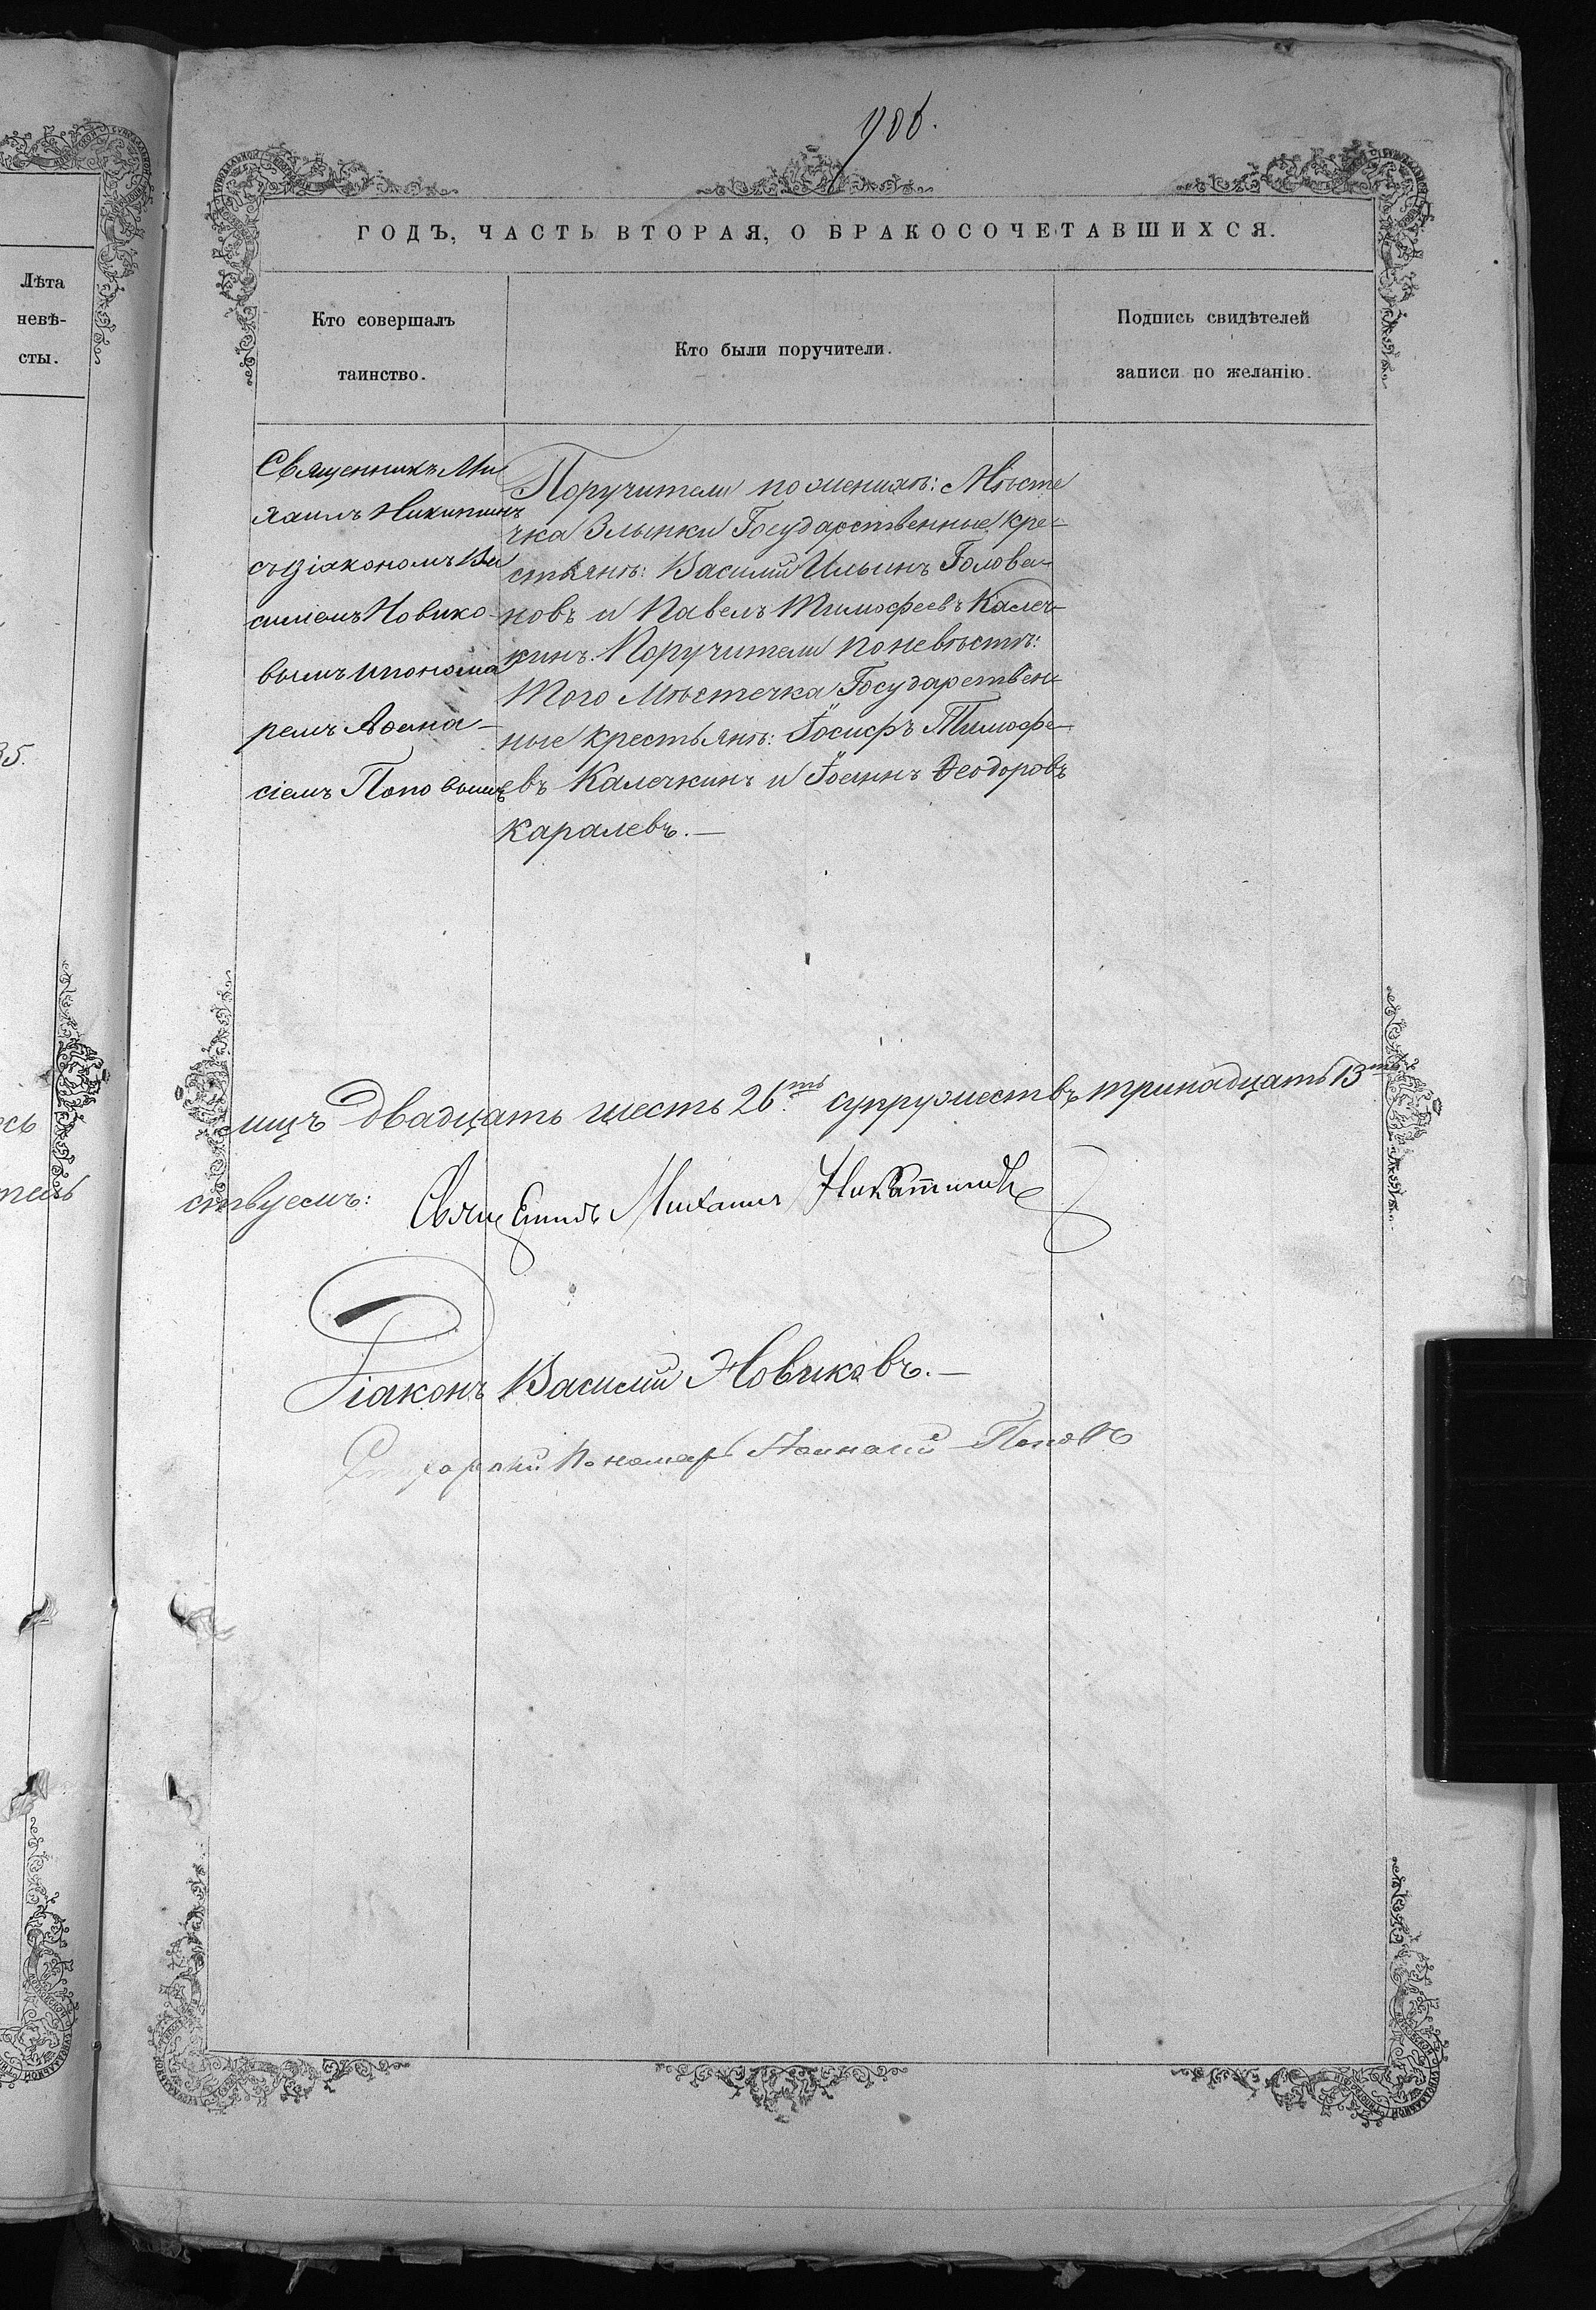 906.
ГОДЪ, ЧАСТЬ ВТОРАЯ, О БРАКОСОЧЕТАВШИХСЯ.
Лѣта
невѣ-
сты.
Кто совершалъ
таинство.
Кто были поручители.
Подпись свидѣтелей
записи по желанію.
35.
Священникъ Ми
хаилъ Никитинъ
съ діакономъ Ва
силіемъ Новико-
вымъ и понома
ремъ Аѳана-
сіемъ Поповымъ
Поручители по женихѣ: Мѣсте
чка Злынки Государственные кре-
стьянѣ: Василий Ильинъ Голова-
новъ и Павелъ Тимофеевъ Калеч-
кинъ. Поручители по невѣстѣ:
Того Мѣстечка Государствен-
ные крестьянѣ: Іосифъ Тимофе-
евъ Калечкинъ и Іоаннъ Ѳеодоровъ
Каралевъ.—
сь
лицъ двадцать шесть 26.ть супружествъ тринадцать 13ть
ствуемъ:
Священникъ Михаилъ
Діаконъ Василий Новиковъ.—
Пономарь Аѳанасий Поповъ